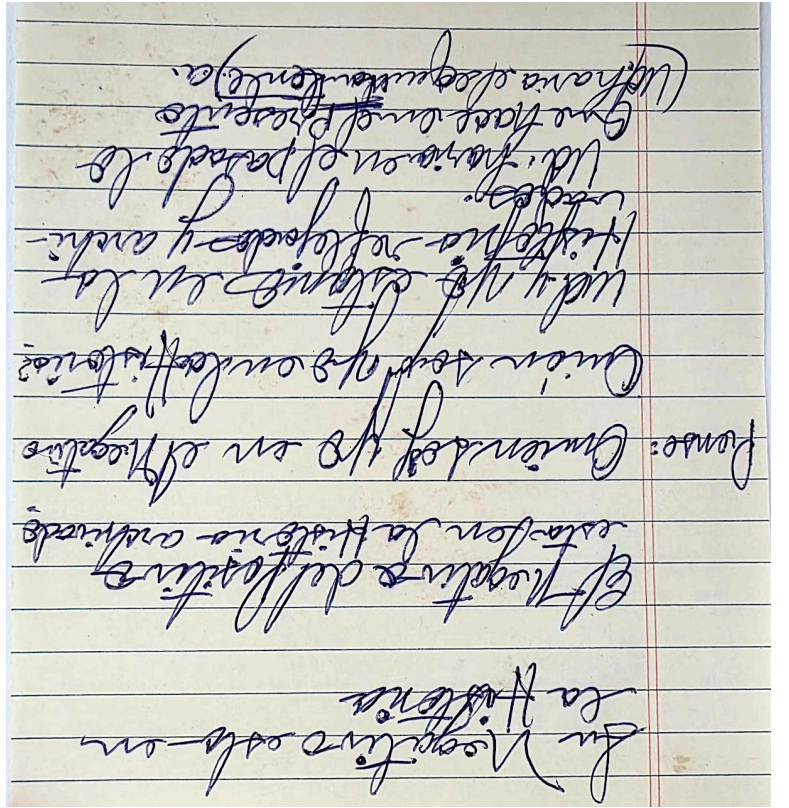 Su Negativo esta en
la Historia
El Negativo del Positivo
esta en la Historia archivado
Pense: Quien soy yo en el Negativo
Quién soy yo en la Historia?
Ud y yo estamos en la
Historia reflejados y archi-
vados.
Ud. haria en el pasado lo
que hace en el presente
(Ud haria